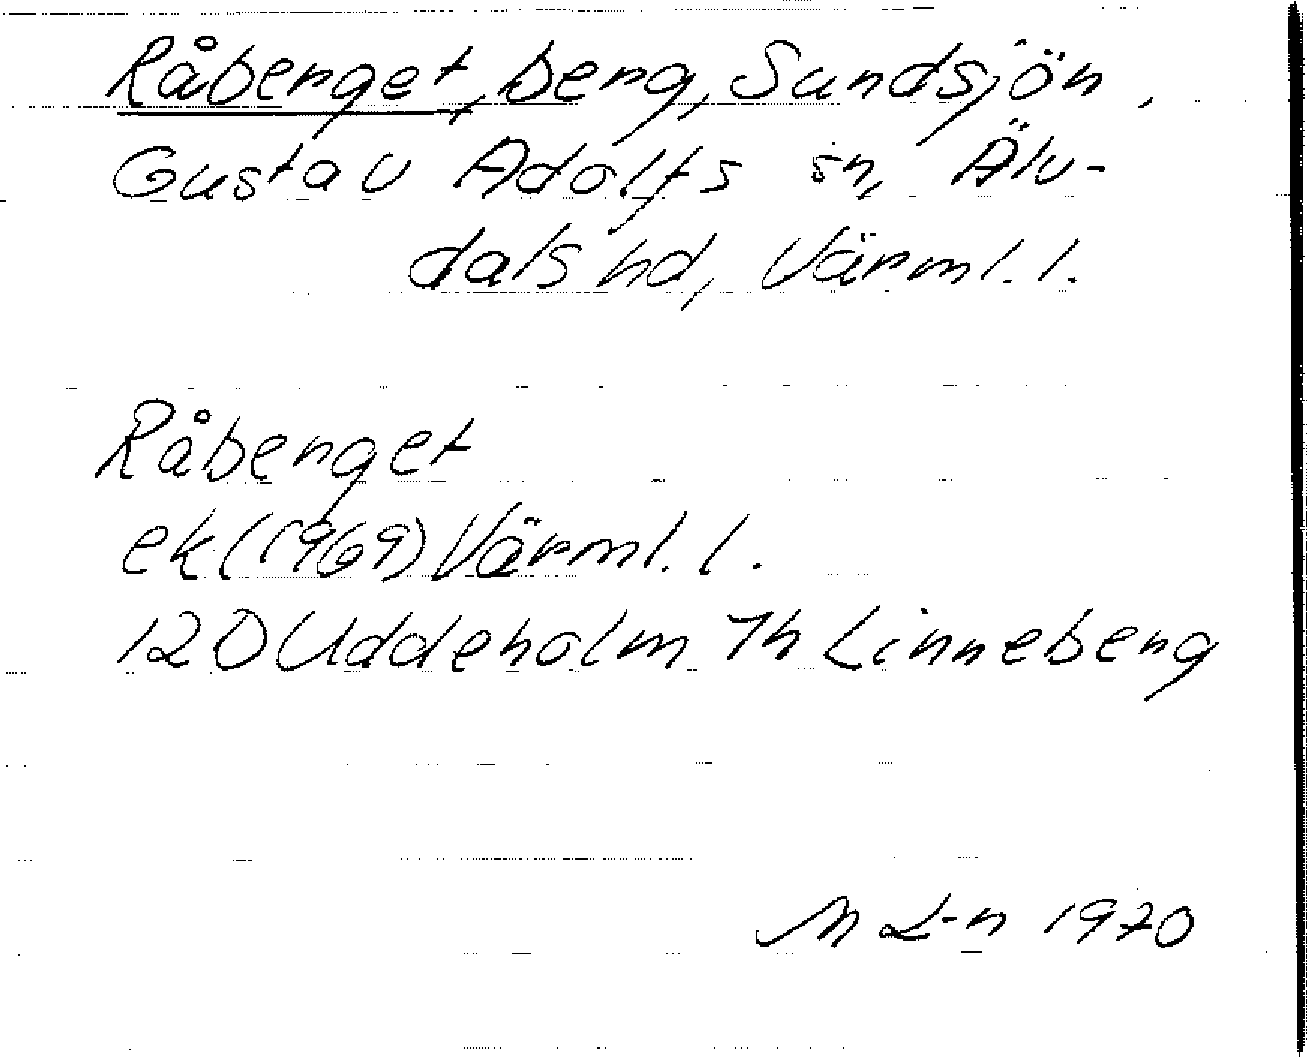 Råberget, berg, Sundsjön,
Gustav Adolfs sn, Älv-
dals hd, Värml. l.
Råberget
ek (1969) Värml. l.
12D Uddeholm Th Linneberg
M L-n 1970